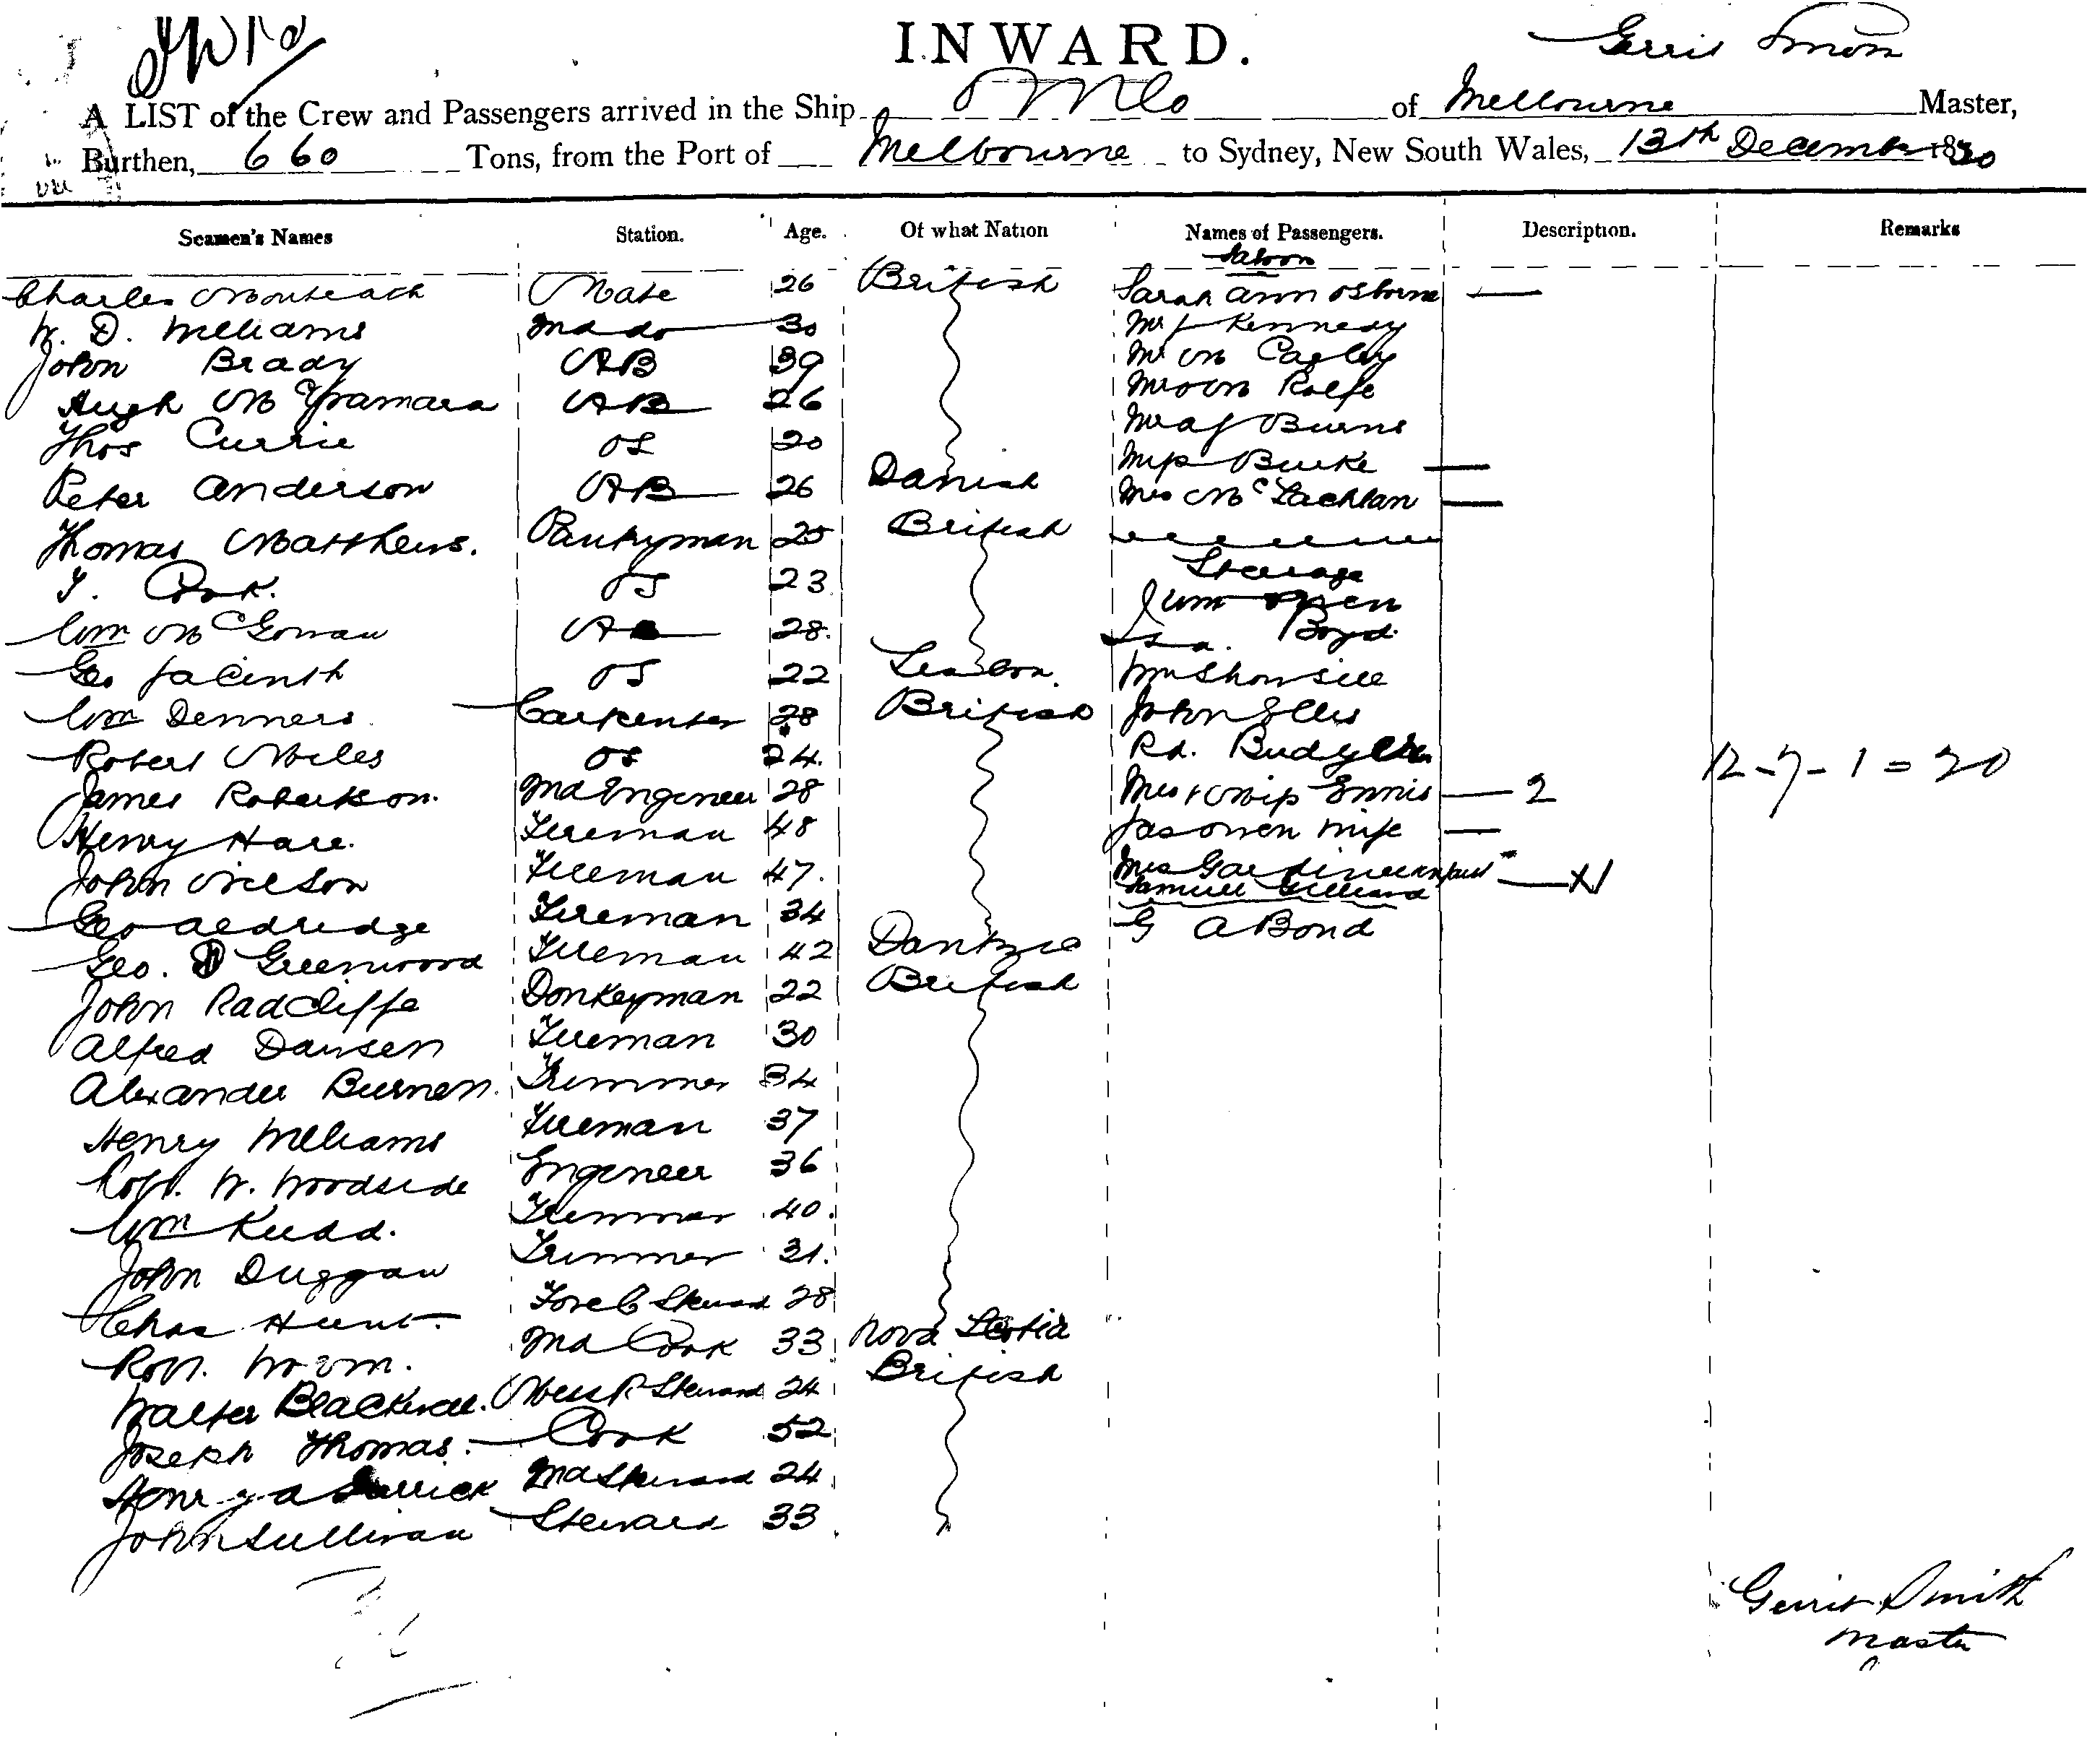 INWARD.
Gerrit Smith
A LIST of the Crew and Passengers arrived in the Ship of Melbourne Master,
Burthen, 660 Tons, from the Port of Melbourne to Sydney, New South Wales, 13th December 1880
Seamen's Names Station. Age. Of what Nation Names of Passengers. Description. Remarks
Saloon
Charles Monteath Mate 26 British Sarah Ann Osborne —
W. D. Williams 2nd do 30 Mr J Kennedy
John Brady AB 39 Mr M
Hugh AB 26 Rolfe
Thos Currie OS 20 Burns
Peter Anderson AB 26 Danish Burke —
Thomas Matthews. Pantryman 25 British Mrs McLachlan —
T. Cook. OS 23 Steerage
Wm McGowan AB 28. Boyd
Geo Jacinth OS 22 Lisbon.
Wm Denners Carpenter 28 British John Ellis
Robert Miles OS 24. Rd. 12-7-1=20
James Robertson. 2nd Engineer 28 Ennis — 2
Henry Hare. Fireman 48 Jas Owen wife —
John Wilson Fireman 47. Mrs Gardiner
Samuel
Geo Aldridge Fireman 34 G A Bond
Geo. Greenwood Fireman 42 Dantzic
John Radcliffe Donkeyman 22 British
Alfred Dawsen Fireman 30
Alexander Burnen. Trimmer 34
Henry Williams Fireman 37
Robt. W. Woodside Engineer 36
Wm Kidd. Trimmer 40.
John Duggan Trimmer 31.
Chas Hunt. Fore C Steward 28
Robt. 2nd Cook 33 Nova Scotia
Walter Blackwell. Mess R Steward 24 British
Joseph Thomas. Cook 52
Henry A 2nd Steward 24
John Sullivan Steward 33
Gerrit Smith
Master